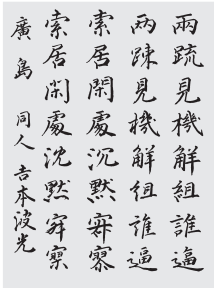 兩疏見機解組誰逼
两疎見機解組誰逼
索居閑處沉默寂寥
索居闲處沈默寂寥
廣島 同人 吉本波光